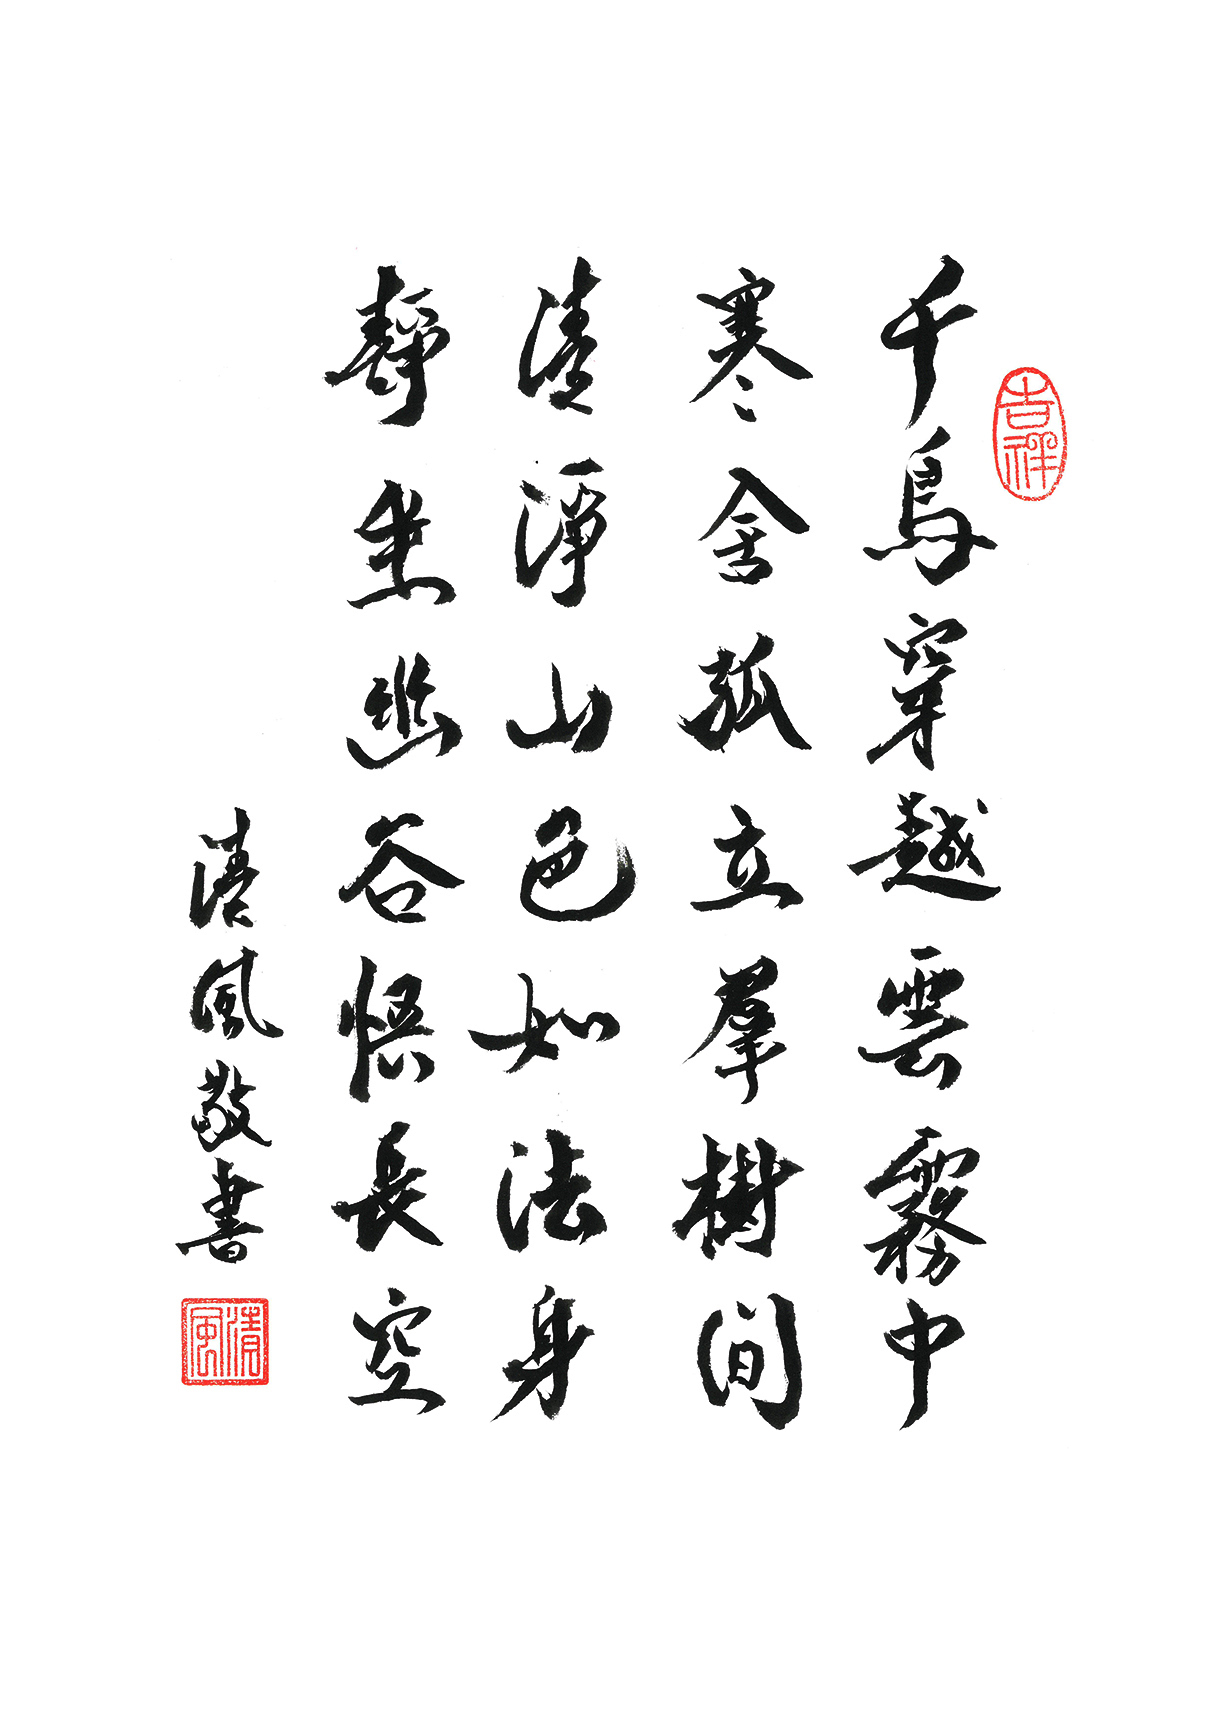 吉祥
千鳥穿越雲霧中
寒舍孤立羣樹間
清淨山色如法身
靜坐幽谷悟長空
清風敬書
清風